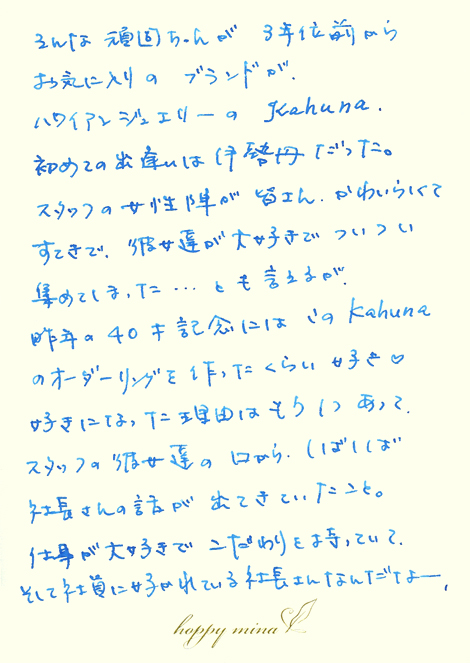 そんな頑固ちゃんが 3年位前から
お気に入りの ブランドが、
ハワイアンジュエリーの Kahuna.
初めての出逢いは伊勢丹だった。
スタッフの女性陣が皆さん、かわいらしくて
すてきで、彼女達が大好きで ついつい
集めてしまった… とも言えるが、
昨年の40才記念には このKahuna
のオーダーリングを作ったくらい好き♡
好きになった理由はもう1つあって、
スタッフの彼女達の口から、しばしば
社長さんの話が出てきていたこと。
仕事が大好きで こだわりを持っていて、
そして社員に好かれている社長さんなんだなー、
happy mina